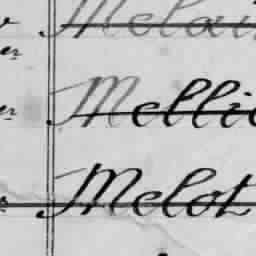 Melai
Mellie
Melot